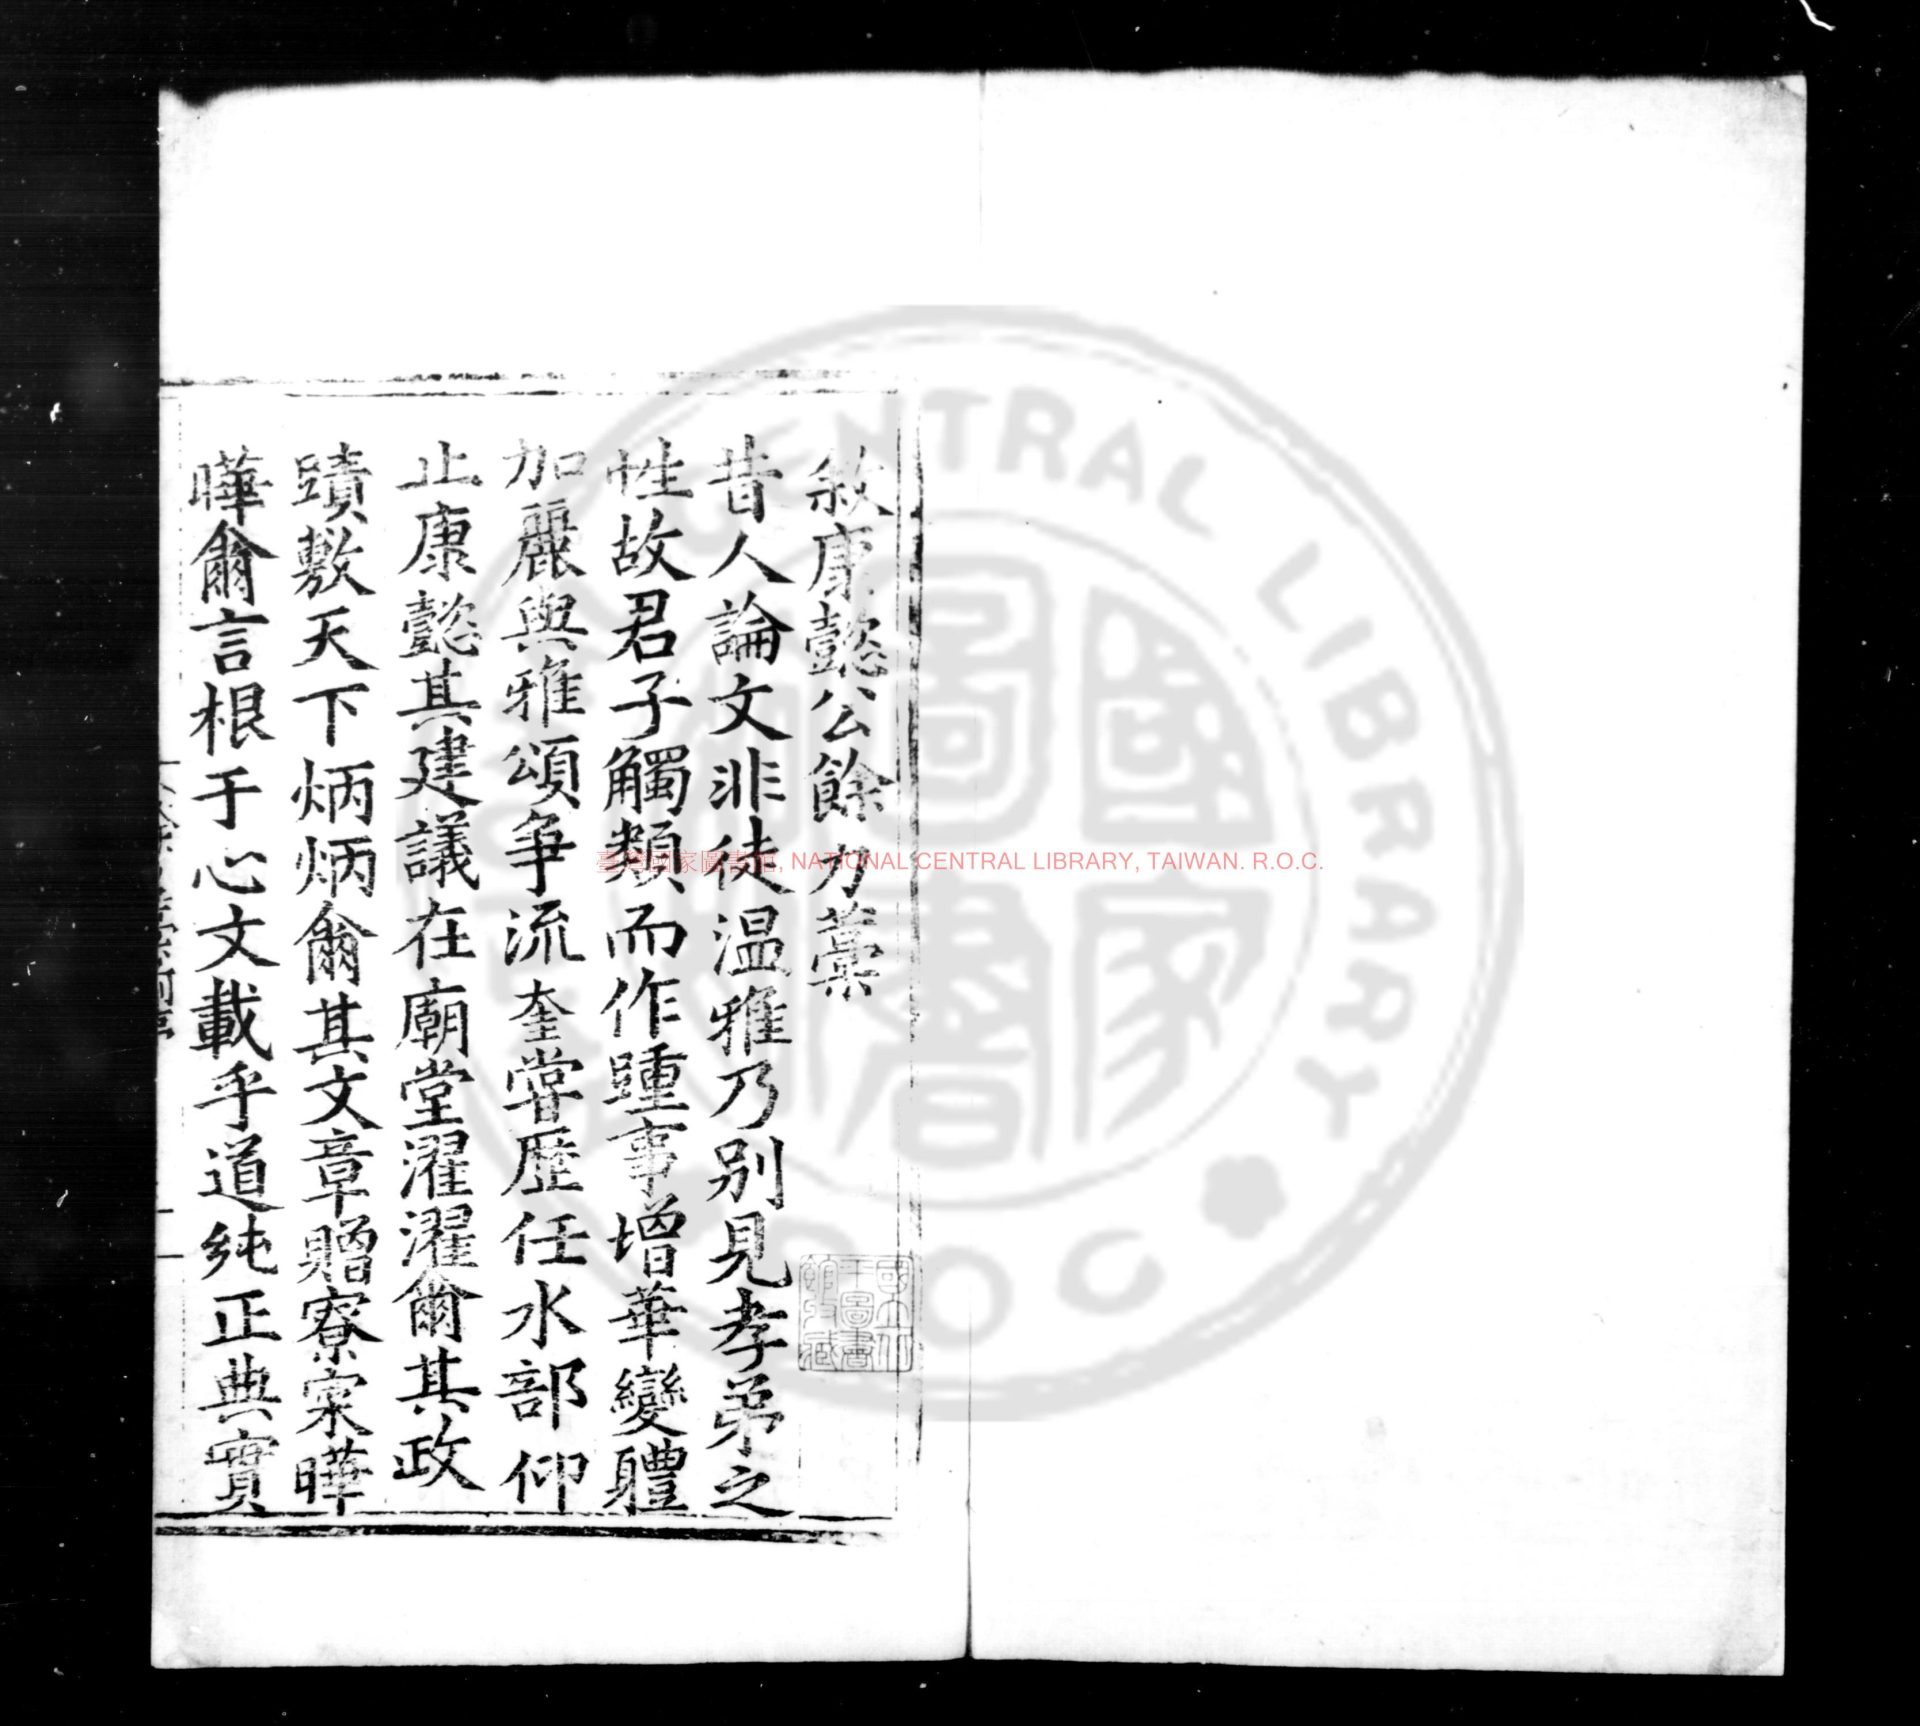 敘康懿公餘力藁
昔人論文非徒温雅乃别見孝弟之
性故君子觸類而作踵事增華變軆
加麗與雅頌爭流奎嘗歷任水部仰
止康懿其建議在廟堂濯濯爾其政
蹟敷天下炳炳爾其文章贈寮寀曄
曄爾言根于心文載乎道純正典實
國立中
央圖書
館收藏
臺灣國家圖書館, NATIONAL CENTRAL LIBRARY, TAIWAN. R.O.C.
CENTRAL LIBRARY
國家
圖書